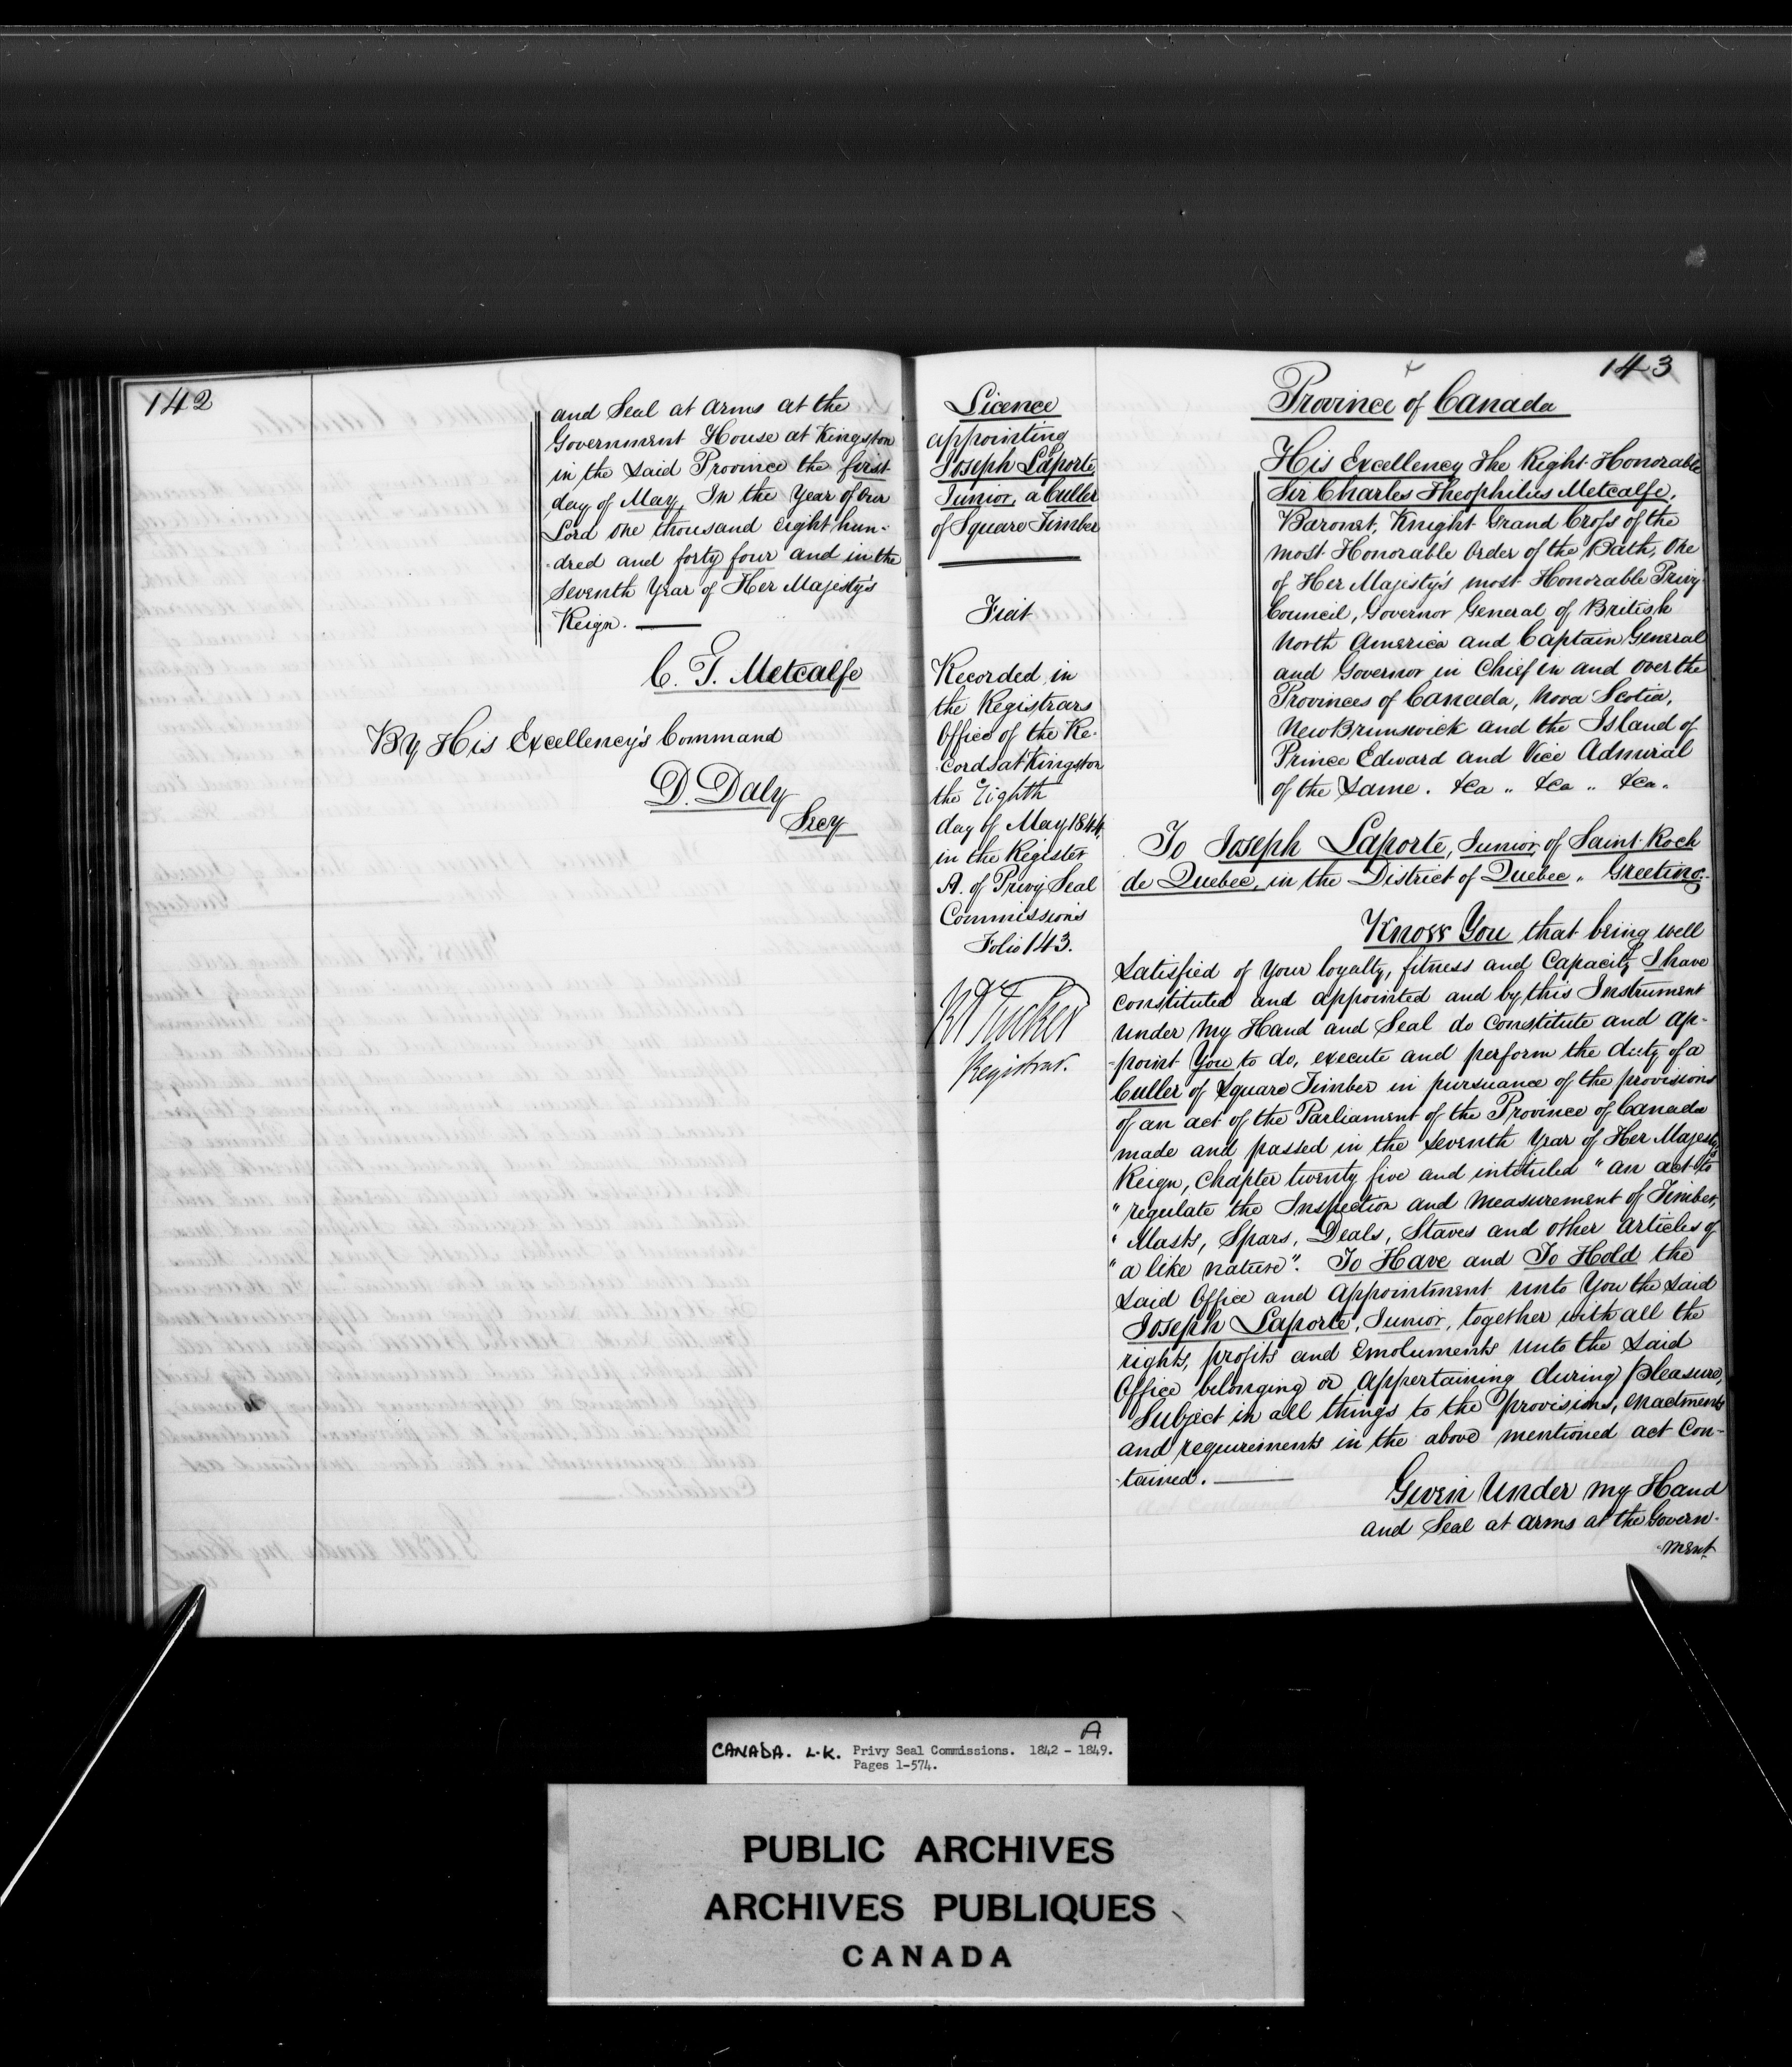 142
and Seal at Arms at the
Government House at Kingston
in the Said Province the first
day of May, In the Year of Our
Lord One thousand eight hun-
-dred and forty four and in the
Seventh Year of Her Majesty's
Reign.
C. T. Metcalfe
By His Excellency's Command
D. Daly
Secy
Licence
appointing
Joseph Laporte,
Junior, a Culler
of Square Timber
Fiat
Recorded in
the Registrars
Office of the Re-
-cords at Kingston
the Eighth
day of May 1844,
in the Register
A. of Privy Seal
Commissions
Folio 143.
R A Tucker
Registrar.
143
Province of Canada
His Excellency The Right Honorable
Sir Charles Theophilus Metcalfe,
Baronet, Knight Grand Cross of the
most Honorable Order of the Bath, One
of Her Majesty's most Honorable Privy
Council, Governor General of British
North America and Captain General
and Governor in Chief in and over the
Provinces of Canada, Nova Scotia,
New Brunswick and the Island of
Prince Edward and Vice Admiral
of the Same. &ca " &ca " &ca "
To Joseph Laporte, Junior, of Saint Roch
de Quebec, in the District of Quebec " Greeting:
Know You that being well
Satisfied of your loyalty, fitness and Capacity, I have
constituted and appointed and by this Instrument
under my Hand and Seal do Constitute and ap-
-point You to do, execute and perform the duty of a
Culler of Square Timber in pursuance of the provisions
of an act of the Parliament of the Province of Canada
made and passed in the Seventh Year of Her Majesty's
Reign, Chapter twenty five and intituled " an act to
" regulate the Inspection and measurement of Timber,
" Masts, Spars, Deals, Staves and other articles of
" a like nature". To Have and To Hold the
Said Office and Appointment unto You the Said
Joseph Laporte, Junior, together with all the
rights, profits and Emoluments unto the Said
Office belonging or Appertaining during pleasure,
Subject in all things to the provisions, enactments
and requirements in the above mentioned act Con-
-tained.
Given Under my Hand
and Seal at arms at the Govern-
-ment
CANADA. L.K. Privy Seal Commissions. 1842 - 1849. A
Pages 1-574.
PUBLIC ARCHIVES
ARCHIVES PUBLIQUES
CANADA